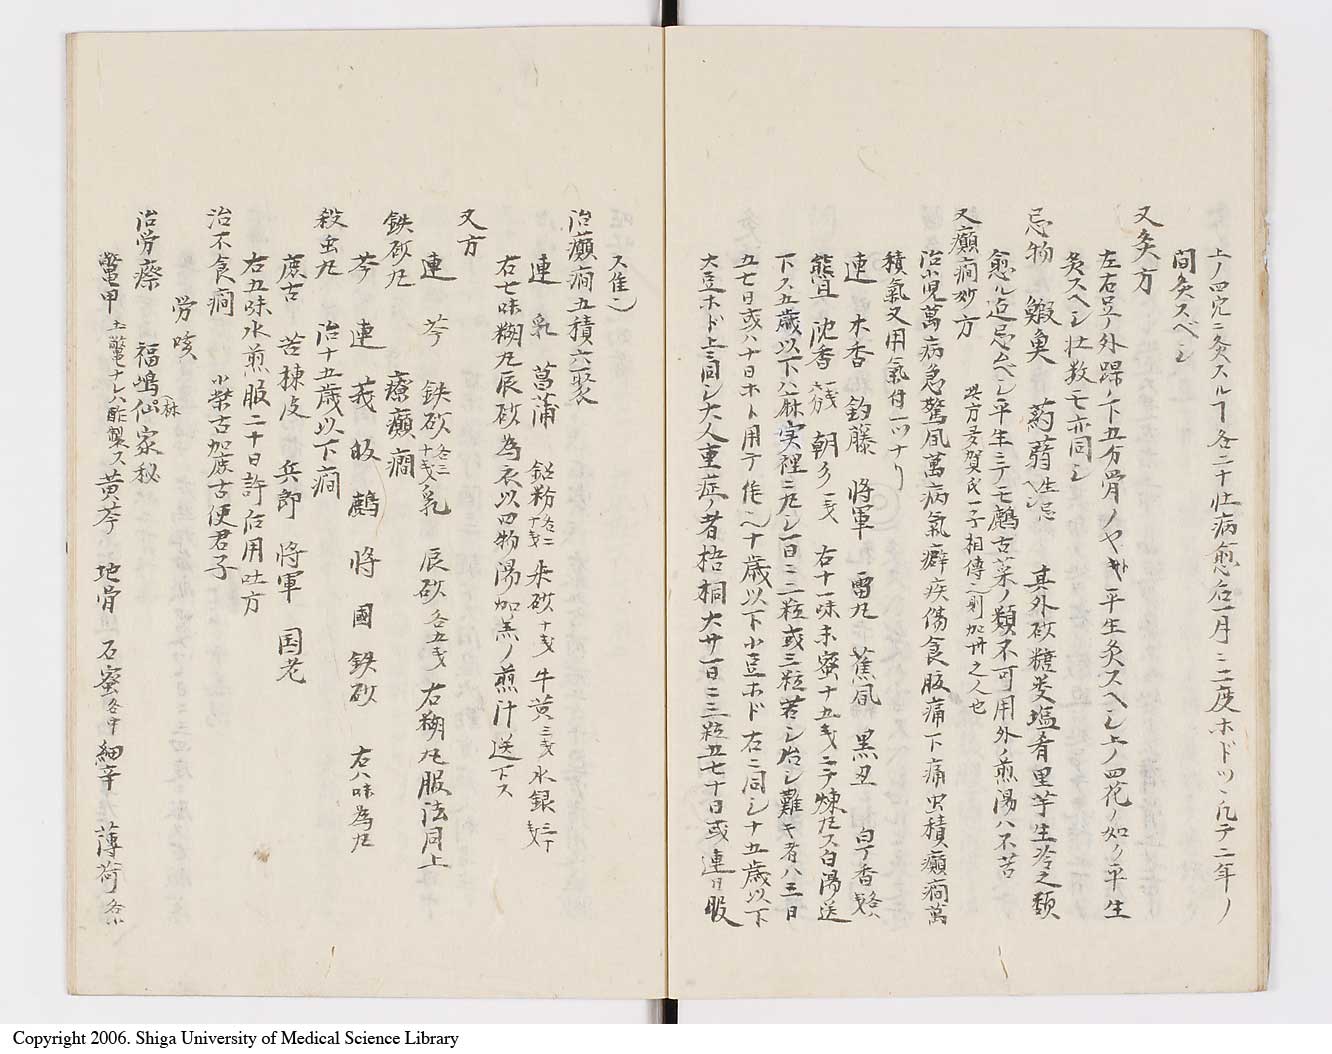 上ノ四穴ニ灸スルヿ各二十壮病愈后一月ニ二三度ホドツヽ凡テ二年ノ
間灸スベシ
又灸方
左右足ノ外踝ノ下五分骨ノヤキ平生灸スヘシ上ノ四花ノ如ク平生
灸スヘシ壮数モ亦同シ
忌物 鰕魚 蒟蒻 生忌ベシ 其外砂糖麥塩肴里芋生冷之類
愈ル迄忌ムベシ平生ニテモ鷓古菜ノ類不可用外ノ煎湯ハ不苦
又癲癇妙方 此方多賀氏一子相傳
治小児萬病急驚風萬病氣癖疾傷食腹痛下痛虫積癲癇萬
積氣又用氣付一ツナリ
連 木香 釣藤 將軍 雷丸 蕉風 黒丑 白丁香
熊胆 沈香 右十一味末蜜十五戔ニテ煉丸ス白湯送
下ス五歳以下ハ麻実程ニ丸シ一日ニ二粒或三粒若シ治シ難キ者ハ三日
五七日或ハ十日ホト用テ作ヘ十歳以下小豆ホド右ニ同シ十五歳以下
大豆ホド上ニ同シ大人重症ノ者梧桐大廿一日ニ三粒五七十日或連日服
ス隹シ
治癲癇五積六聚
連 乳 菖蒲 鉛粉 各二十戔 朱砂 十戔 牛黄 三戔 水銀
右七味糊丸辰砂為衣以四物湯加羌ノ煎汁送下ス
又方
連 芩 鉄砂 乳 辰砂 各五戔 右糊丸服法同上
鉄砂丸 療癲癇
芩 連 莪 鷓 將 國 鉄砂 右八味為丸
殺虫丸 治十五歳以下癇
鷓古 苦楝皮 兵郎 將軍 国老
右五味水煎服二十日許治用吐方
治不食癇 小柴古加鷓古使君子
労咳
治労瘵 福嶋仙家秘
鱉甲 土鱉ナレハ酢製ス 黄芩 地骨 石蜜 各中 細辛 薄荷 各小